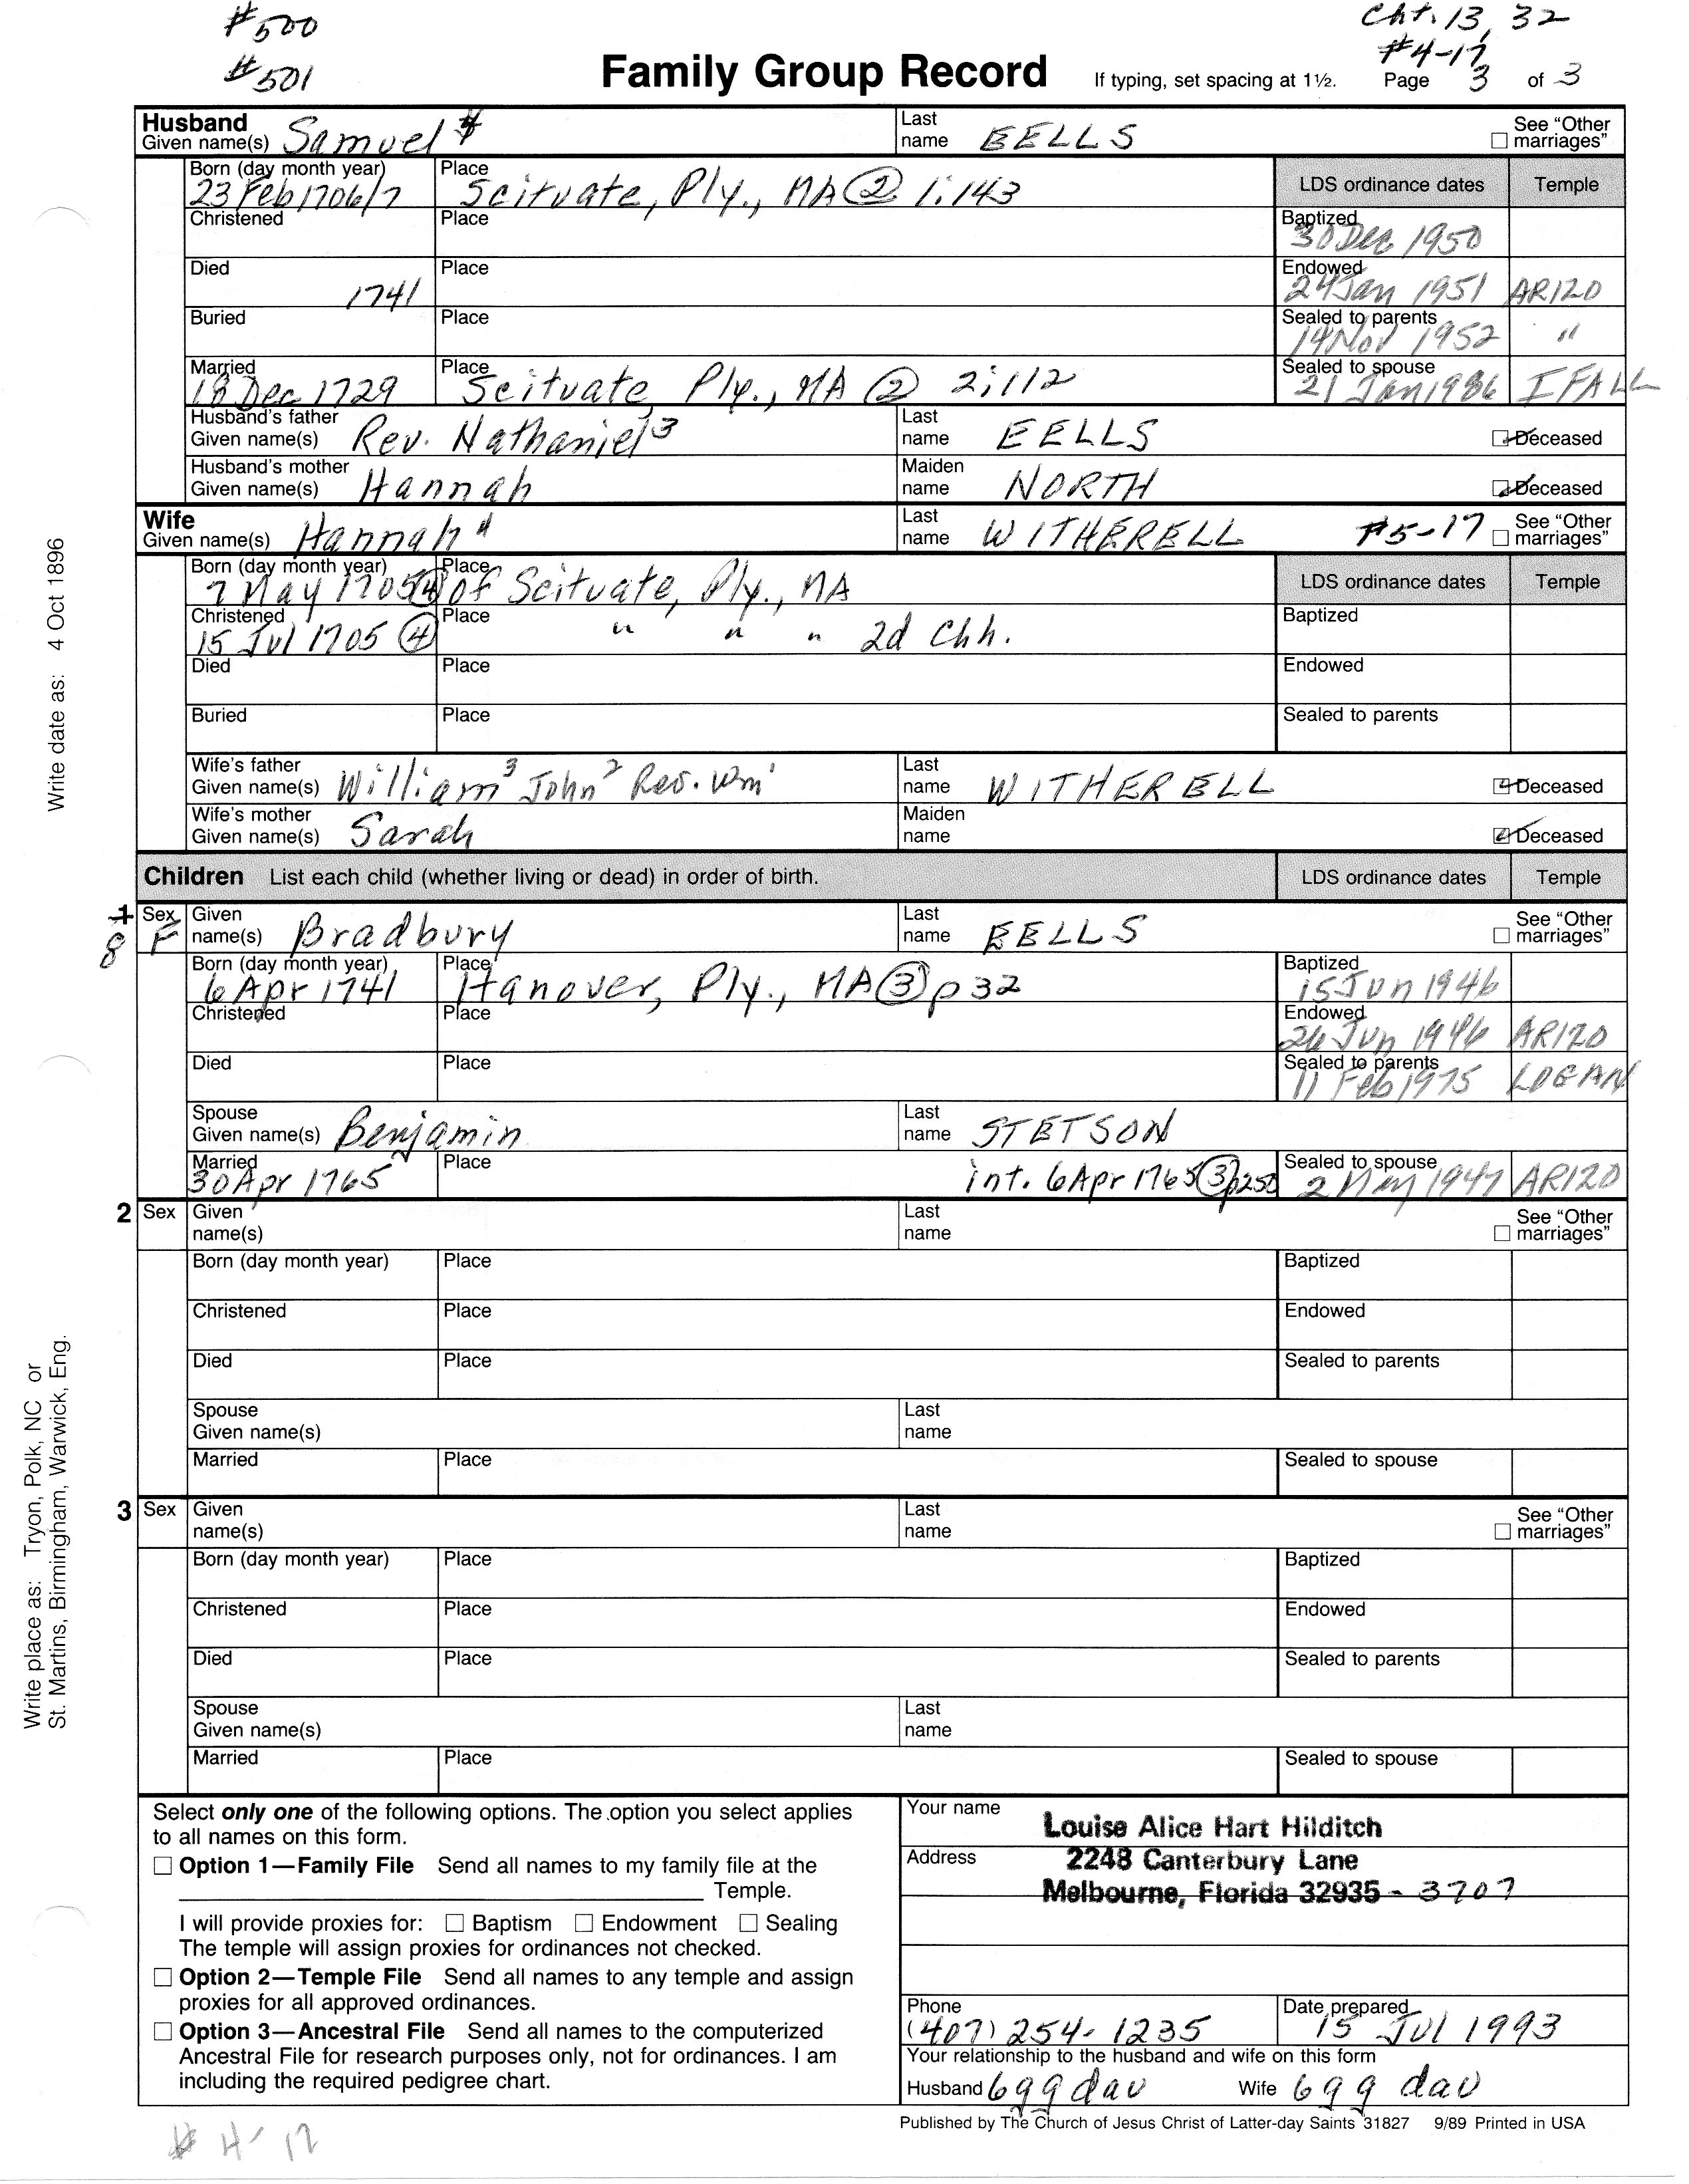 #500
Cht. 13, 32
#501
#4-17
Family Group Record If typing, set spacing at 1½. Page 3 of 3
Husband
Given name(s) Samuel 4 Last name EELLS ☐ See "Other marriages"
Born (day month year) 23 Feb 1706/7 Place Scituate, Ply., MA ② 1:143 LDS ordinance dates Temple
Christened Place Baptized 30 Dec 1950
Died 1741 Place Endowed 24 Jan 1951 ARIZO
Buried Place Sealed to parents 14 Nov 1952 "
Married 18 Dec 1729 Place Scituate, Ply., MA ② 2:112 Sealed to spouse 21 Jan 1986 IFALL
Husband's father
Given name(s) Rev. Nathaniel 3 Last name EELLS Deceased
Husband's mother
Given name(s) Hannah Maiden name NORTH Deceased
Wife
Given name(s) Hannah 4 Last name WITHERELL #5-17 ☐ See "Other marriages"
Born (day month year) 7 May 1705 ④ Place of Scituate, Ply., MA LDS ordinance dates Temple
Christened 15 Jul 1705 ④ Place " " " 2d Chh. Baptized
Died Place Endowed
Buried Place Sealed to parents
Wife's father
Given name(s) William 3 John 2 Rev. Wm 1 Last name WITHERELL Deceased
Wife's mother
Given name(s) Sarah Maiden name Deceased
Children List each child (whether living or dead) in order of birth. LDS ordinance dates Temple
1 8 Sex F Given name(s) Bradbury Last name EELLS ☐ See "Other marriages"
Born (day month year) 6 Apr 1741 Place Hanover, Ply., MA ③ p 32 Baptized 15 Jun 1946
Christened Place Endowed 26 Jun 1946 ARIZO
Died Place Sealed to parents 11 Feb 1975 LOGAN
Spouse
Given name(s) Benjamin Last name STETSON
Married 30 Apr 1765 Place int. 6 Apr 1765 ③ p250 Sealed to spouse 2 May 1947 ARIZO
2 Sex Given name(s) Last name ☐ See "Other marriages"
Born (day month year) Place Baptized
Christened Place Endowed
Died Place Sealed to parents
Spouse
Given name(s) Last name
Married Place Sealed to spouse
3 Sex Given name(s) Last name ☐ See "Other marriages"
Born (day month year) Place Baptized
Christened Place Endowed
Died Place Sealed to parents
Spouse
Given name(s) Last name
Married Place Sealed to spouse
Write date as: 4 Oct 1896
Write place as: Tryon, Polk, NC or
St. Martins, Birmingham, Warwick, Eng.
Select only one of the following options. The option you select applies
to all names on this form.
☐ Option 1—Family File Send all names to my family file at the
Temple.
I will provide proxies for: ☐ Baptism ☐ Endowment ☐ Sealing
The temple will assign proxies for ordinances not checked.
☐ Option 2—Temple File Send all names to any temple and assign
proxies for all approved ordinances.
☐ Option 3—Ancestral File Send all names to the computerized
Ancestral File for research purposes only, not for ordinances. I am
including the required pedigree chart.
Your name Louise Alice Hart Hilditch
Address 2248 Canterbury Lane
Melbourne, Florida 32935 - 3707
Phone (407) 254-1235 Date prepared 15 Jul 1993
Your relationship to the husband and wife on this form
Husband 6 gg dau Wife 6 gg dau
Published by The Church of Jesus Christ of Latter-day Saints 31827 9/89 Printed in USA
# 4-17